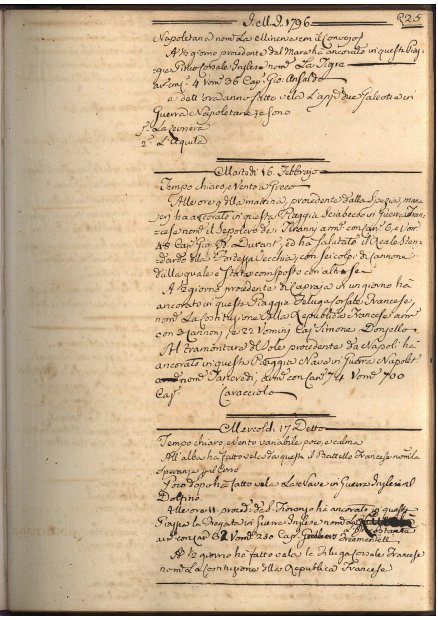 A.M.D. 1796
225
Napoletana nom.ta La Minerva con il Convojo
A ½ giorno procedente dal Mare ha ancorato in questa Piag-
gia Corsale Inglese nom. La Tigra
Can. 4 Vom. 36 Cap. Gio. Ansaldo
e dell'ora anno fatto vela L'app. due Galeotte in
Guerra Napoletane, e sono
1.ª La
2.ª L'Aquila
Martedi 16. Febbrajo
Tempo chiaro, e Vento a Greco
Alle ore 9 della mattina, procedente dalla Spezia,
ha ancorato in questa Piaggia Sciabecco in Guerra Fran-
cese nom. il Sepolcro de Tiranny arm. con Can. 6, e Vom.
45 Cap. Gio. B. Durant, ed ha Salutato il Reale Sten-
dardo della Fortezza Vecchia, con sei colpi di Cannone
dilla quale è Stato composto con alt.
A ½ giorno procidente di Capraja in un giorno há
ancorato in questa Piaggia Feluga Corsale Francese,
nom. La Costituzione della Republica Francese arm.
con 2 Cannoni, e 22 Vomini Cap. Simone Donjello
Al tramontare del Sole procidente da Napoli há
ancorato in questa Piaggia Nave in Guerra Napolet.
nom. Tancredi, arm. con Can. 74 Vom. 700
Cap. Caracciolo
Mercoldi 17 Detto
Tempo chiaro, e Vento variabile poco, e calma
All'alba ha fatto vela da questa il Battello Francese nom. la
Speranza, p. il Corso
Poco dopo há fatto vela La Nave in Guerra Inglese il
Dolfino.
Alle ore 11. proced. da S. Fiorenzo há ancorato in questa
Piaggia la Fregata in Guerra Inglese nom. La
Costante
arm. con Can. 32 Vom. 250 Cap.
A ½ giorno há fatto vela la Filuga Corsale Francese
nom. La Costituzione della Republica Francese